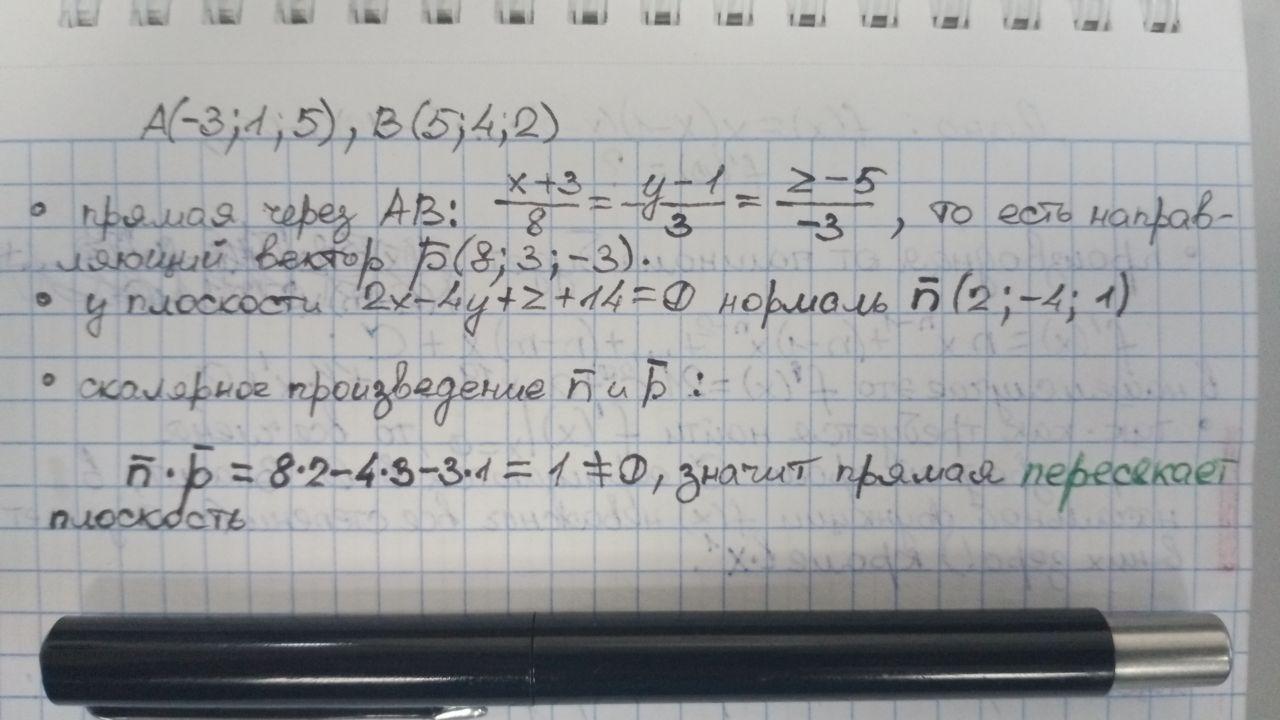 A(-3;1;5), B(5;4;2)
• прямая через AB: (x+3)/8 = (y-1)/3 = (z-5)/-3, то есть направ-
ляющий вектор p̄(8;3;-3).
• у плоскости 2x-4y+z+14=0 нормаль n̄(2;-4;1)
• скалярное произведение n̄ и p̄:
n̄·p̄ = 8·2-4·3-3·1=1≠0, значит прямая пересекает
плоскость